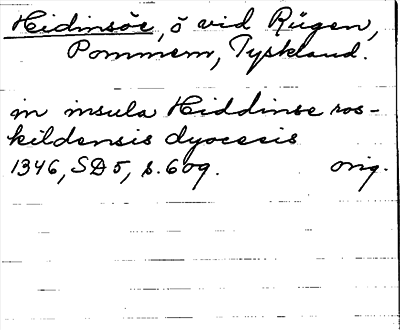 Hidinsöe, ö vid Rügen,
Pommern, Tyskland.
in insula Hiddinse ros-
kildensis dyocesis
1346, SD 5, s. 609. orig.